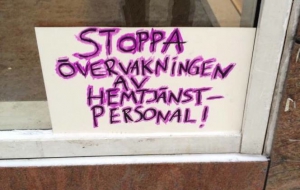 STOPPA
ÖVERVAKNINGEN
AV
HEMTJÄNST-
PERSONAL!